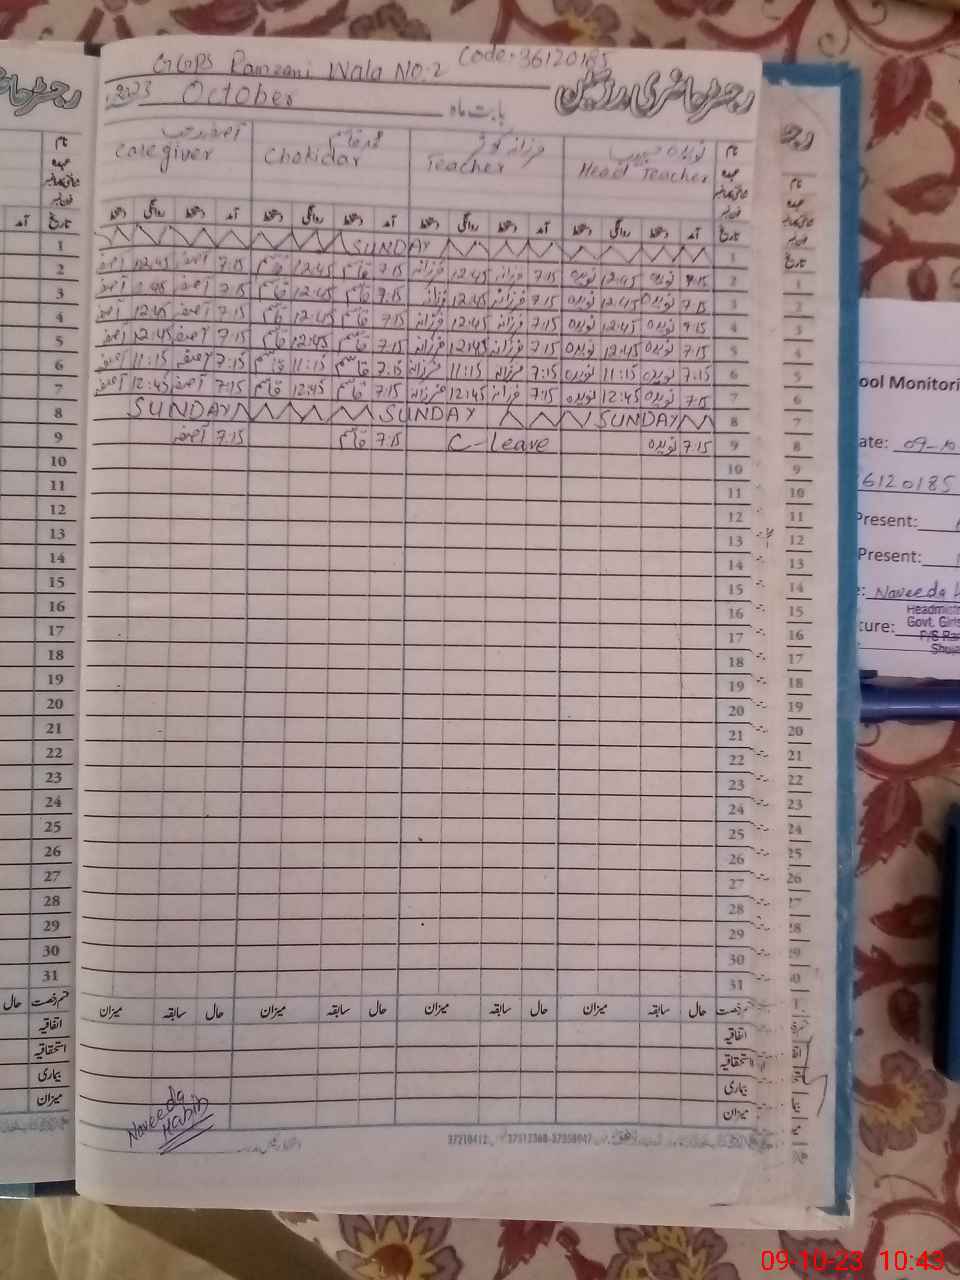 GGPS Ramzani Wala NO.2 Code:36120185
رجسٹر حاضری مدرسین
بابت ماہ October 2023
نام نویدہ حبیب فرزانہ کوثر محمد قاسم
عہدہ Head Teacher Teacher Chokidar Caregiver
تاریخ آمد دستخط روانگی دستخط آمد دستخط روانگی دستخط آمد دستخط روانگی دستخط آمد دستخط روانگی دستخط
1 SUNDAY
2 7:15 نویدہ 12:45 نویدہ 7:15 فرزانہ 12:45 فرزانہ 7:15 قاسم 12:45 قاسم 7:15 آصفہ 12:45 آصفہ
3 7:15 نویدہ 12:45 نویدہ 7:15 فرزانہ 12:45 فرزانہ 7:15 قاسم 12:45 قاسم 7:15 آصفہ 12:45 آصفہ
4 7:15 نویدہ 12:45 نویدہ 7:15 فرزانہ 12:45 فرزانہ 7:15 قاسم 12:45 قاسم 7:15 آصفہ 12:45 آصفہ
5 7:15 نویدہ 12:45 نویدہ 7:15 فرزانہ 12:45 فرزانہ 7:15 قاسم 12:45 قاسم 7:15 آصفہ 12:45 آصفہ
6 7:15 نویدہ 11:15 نویدہ 7:15 فرزانہ 11:15 فرزانہ 7:15 قاسم 11:15 قاسم 7:15 آصفہ 11:15 آصفہ
7 7:15 نویدہ 12:45 نویدہ 7:15 فرزانہ 12:45 فرزانہ 7:15 قاسم 12:45 قاسم 7:15 آصفہ 12:45 آصفہ
8 SUNDAY SUNDAY SUNDAY
9 7:15 نویدہ C-Leave 7:15 قاسم 7:15 آصفہ
10
11
12
13
14
15
16
17
18
19
20
21
22
23
24
25
26
27
28
29
30
31
قسم رخصت حال سابقہ میزان حال سابقہ میزان حال سابقہ میزان حال سابقہ میزان
اتفاقیہ
استحقاقیہ
بیماری
میزان
Naveeda
Habib
ool Monitori
ate: 09-10
6120185
Present:
Present:
: Naveeda H
Headmist
ture: Govt. Girls
P/S Ra
Shuja
09-10-23 10:43